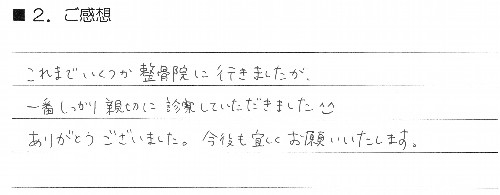 ■ 2. ご感想
これまでいくつか整骨院に行きましたが、
一番しっかり親切に診察していただきました^^
ありがとうございました。今後も宜しくお願いいたします。